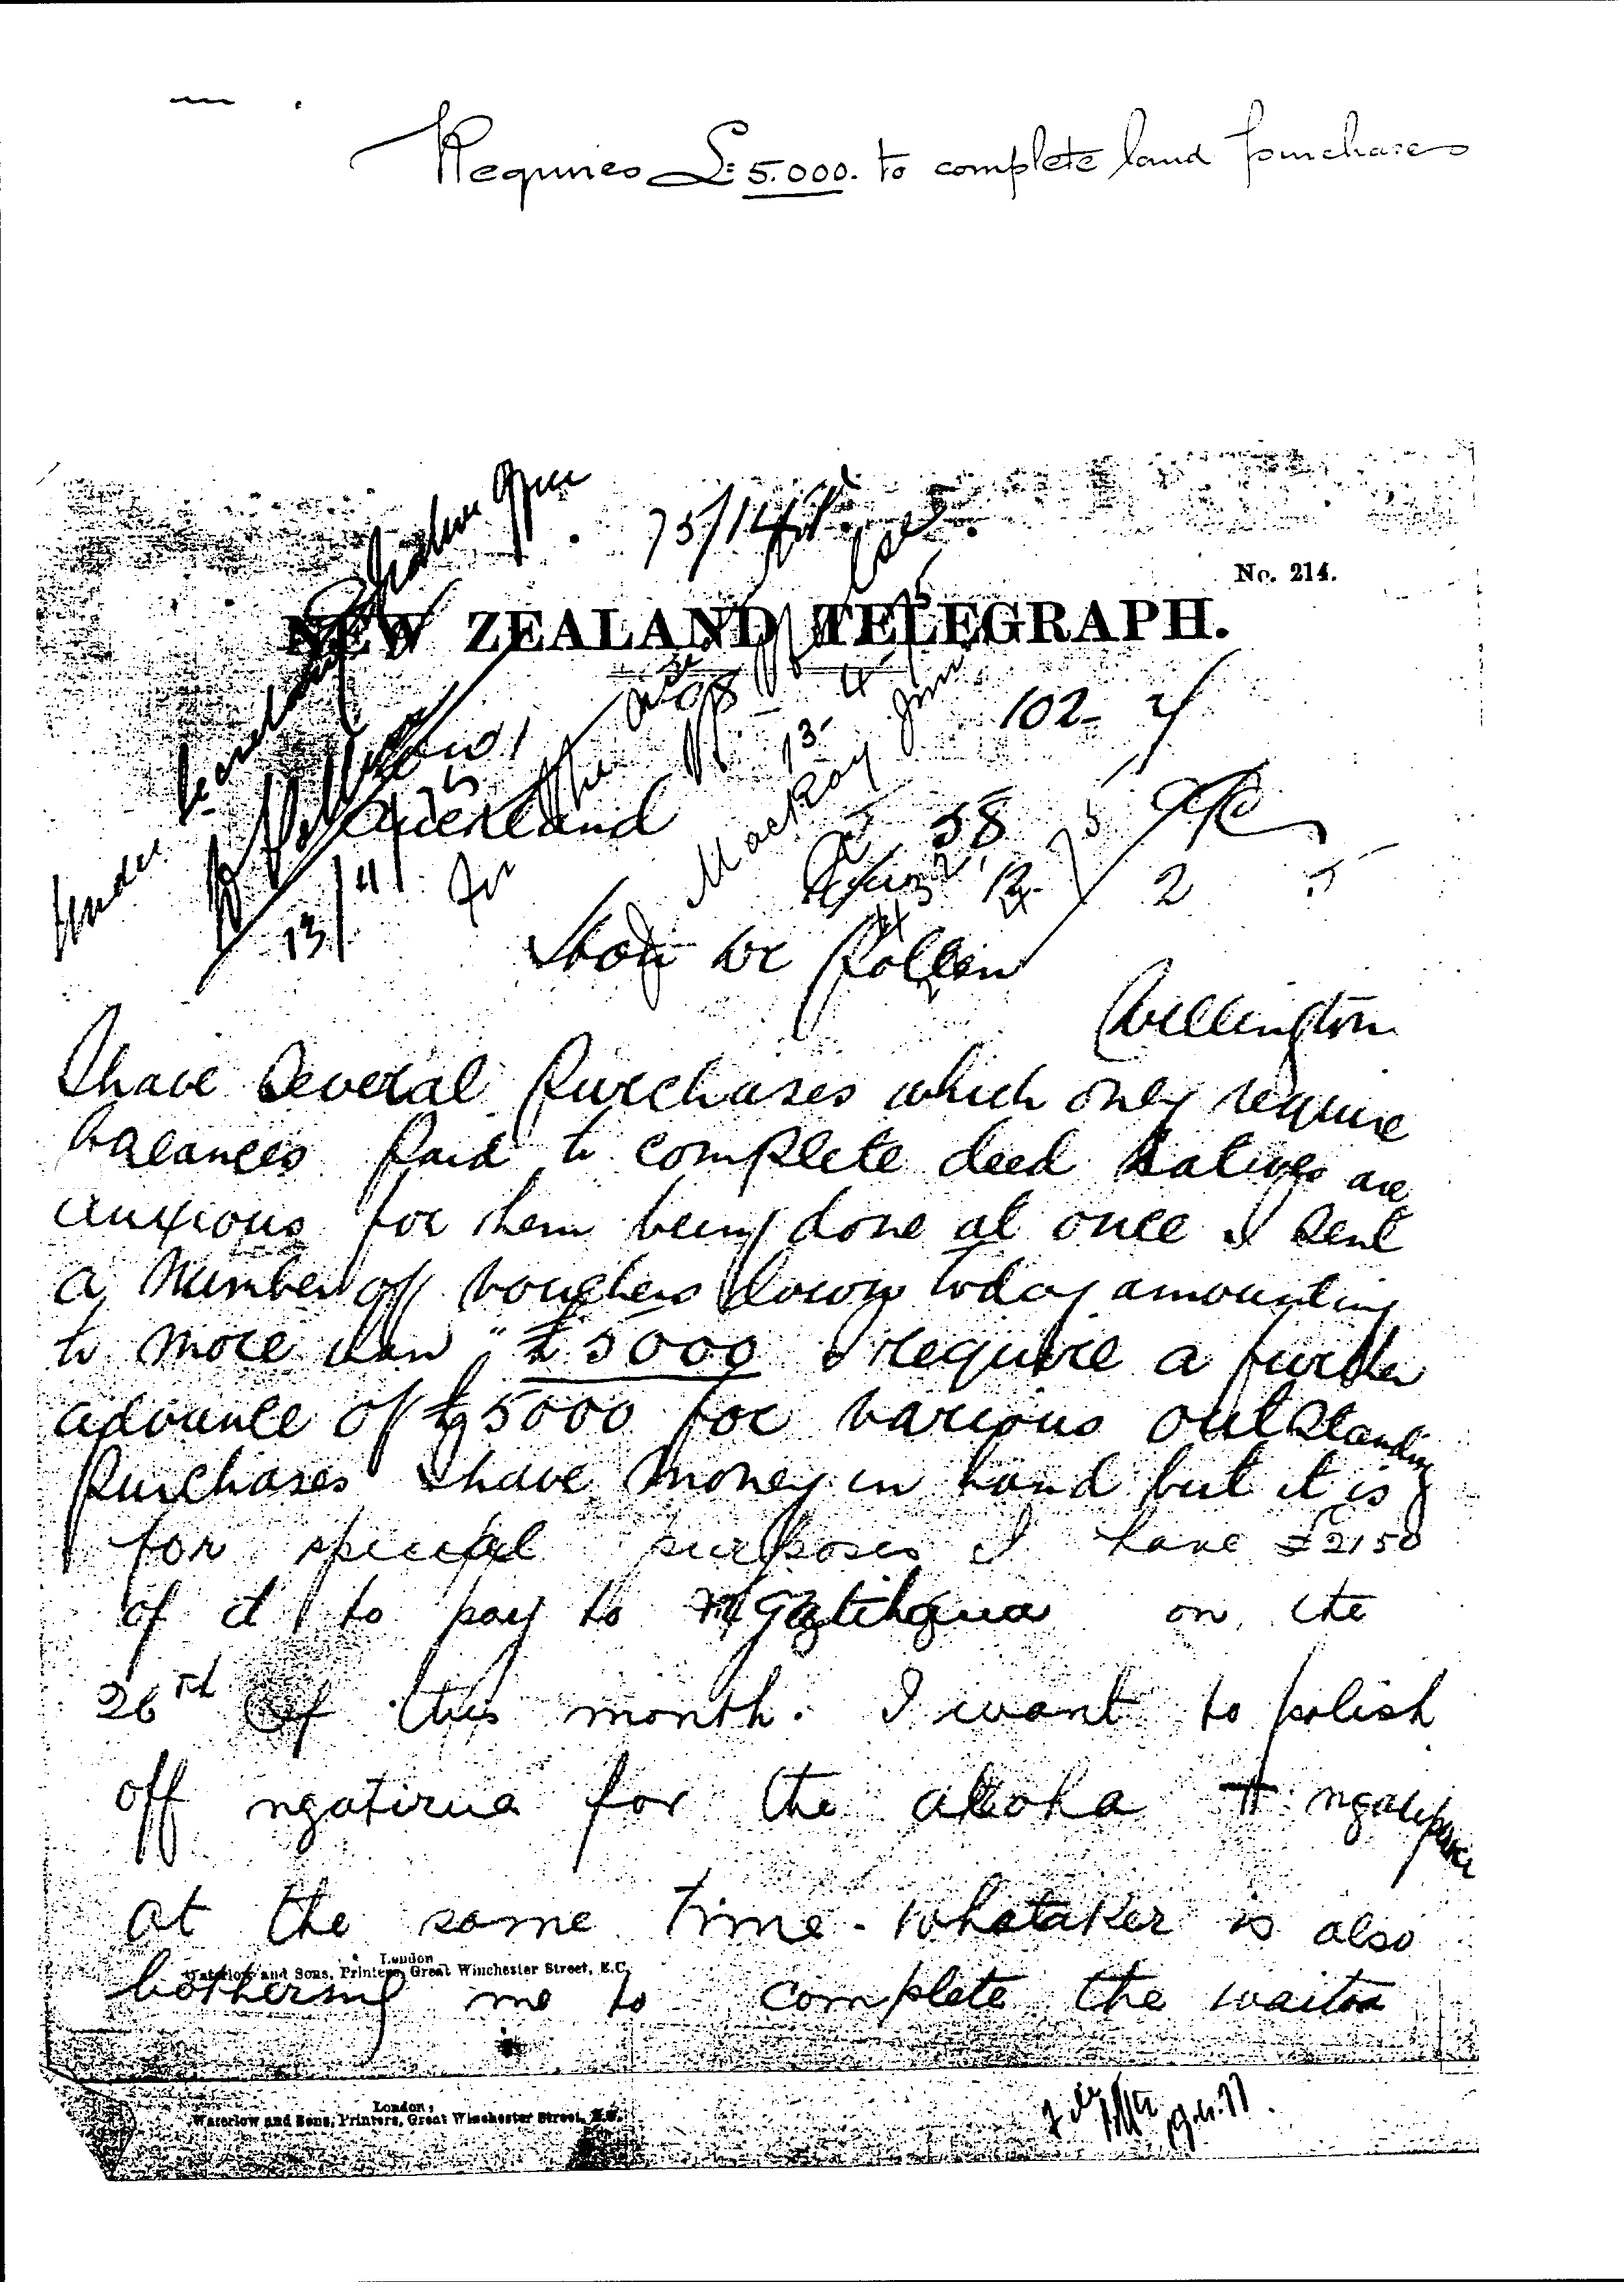 Requires £5.000. to complete land purchases
No. 214.
NEW ZEALAND TELEGRAPH.
102
Auckland
58
13/4/75
Mackay
Hon Dr Pollen
Wellington
I have several purchases which only require
balances paid to complete deed natives are
anxious for them being done at once I sent
a number of vouchers down today amounting
to more than "£5000 I require a further
advance of £5000 for various outstanding
purchases I have money in hand but it is
for special purposes I have £2150
of it to pay to on the
26th of this month. I want to polish
off ngatirua for the aroha
at the same time. Whitaker is also
bothering me to complete the waitoa
London
Waterlow and Sons, Printers, Great Winchester Street, E.C.
London:
Waterlow and Sons, Printers, Great Winchester Street, E.C.